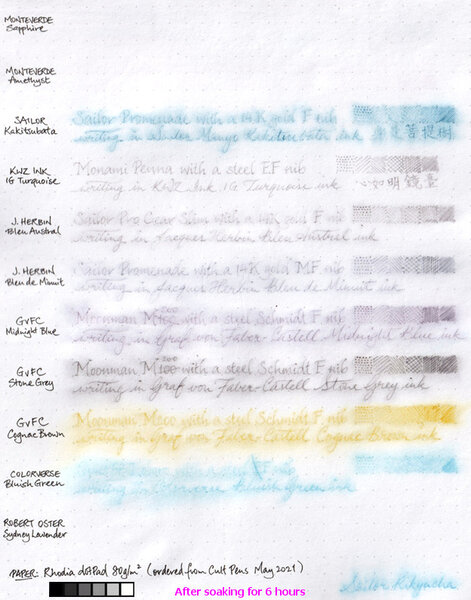 MONTEVERDE
Sapphire
MONTEVERDE
Amethyst
SAILOR
Kakitsubata
Sailor Promenade with a 14K gold F nib
writing in Kakitsubata ink 菩提樹
KWZ INK
IG Turquoise
Monami Penna with a steel EF nib
writing in KWZ Ink IG Turquoise ink 心如明鏡臺
J. HERBIN
Bleu Austral
Sailor Pro Gear Slim with a 14K gold F nib
writing in Jacques Herbin Bleu Austral ink
J. HERBIN
Bleu de Minuit
Sailor Promenade with a 14K gold MF nib
writing in Jacques Herbin Bleu de Minuit ink
GvFC
Midnight Blue
Moonman M100 with a steel Schmidt F nib
writing in Graf von Faber-Castell Midnight Blue ink
GvFC
Stone Grey
Moonman M100 with a steel Schmidt F nib
writing in Graf von Faber-Castell Stone Grey ink
GvFC
Cognac Brown
Moonman M200 with a steel Schmidt F nib
writing in Graf von Faber-Castell Cognac Brown ink
COLORVERSE
Bluish Green
F nib
writing in Colorverse Bluish Green ink
ROBERT OSTER
Sydney Lavender
PAPER: Rhodia dotPad 80g/m² (ordered from Cult Pens May 2021)
Sailor Rikyucha
After soaking for 6 hours